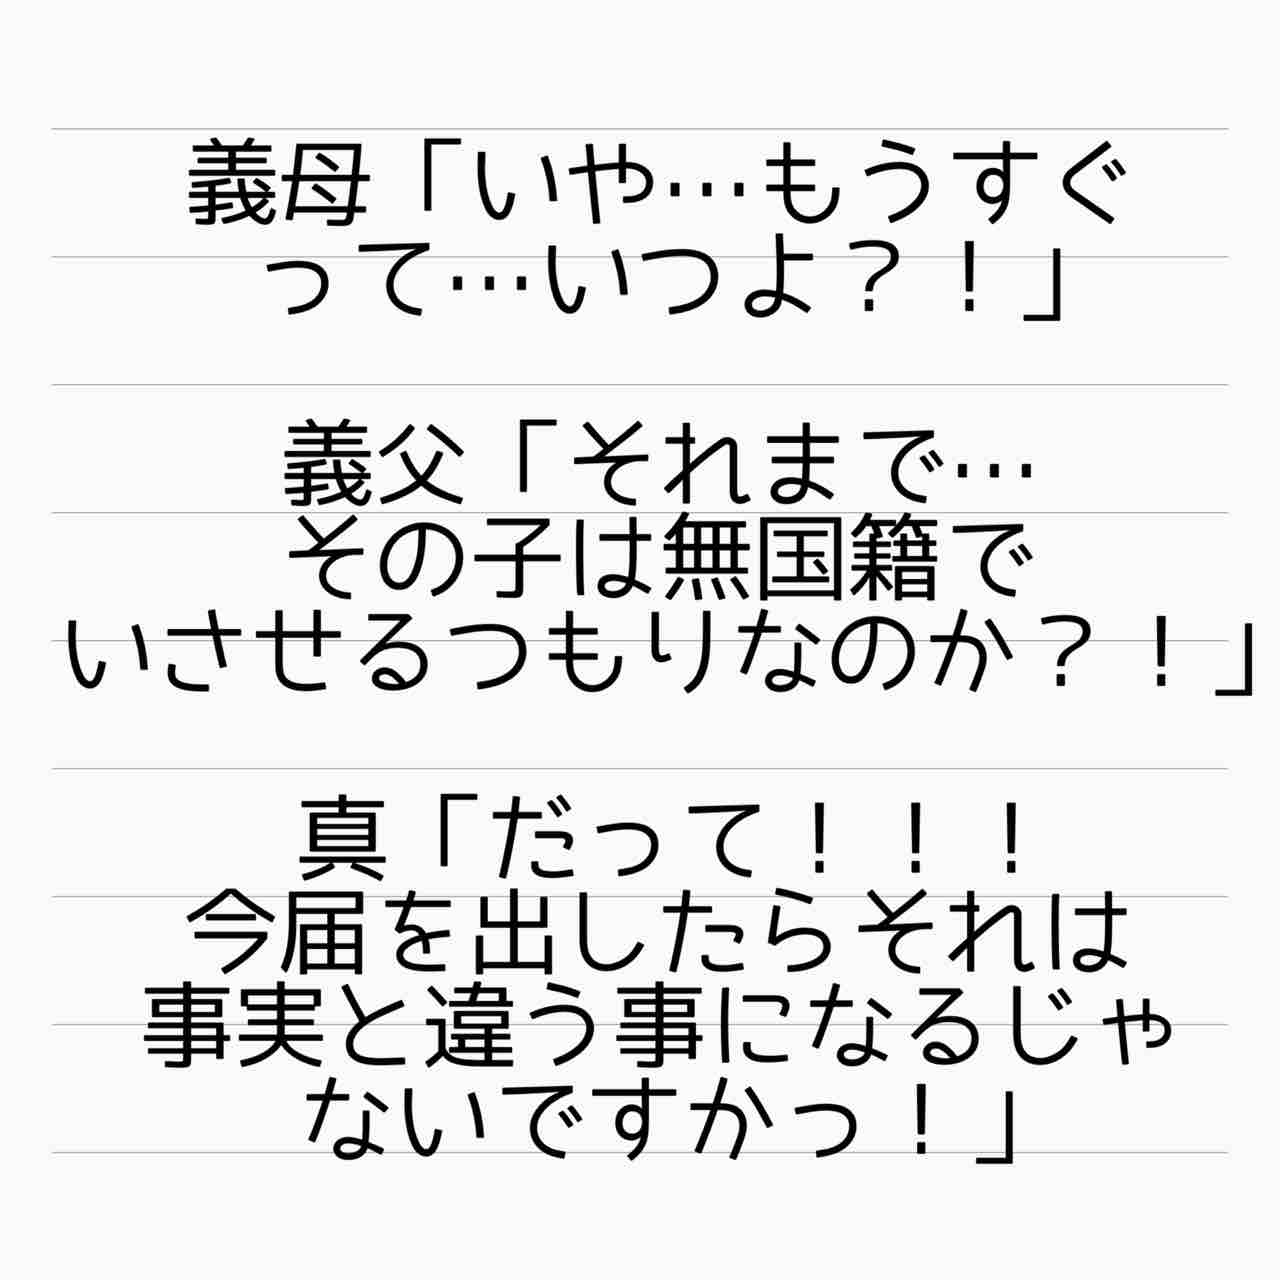 義母「いや…もうすぐ
って…いつよ？！」
義父「それまで…
その子は無国籍で
いさせるつもりなのか？！」
真「だって！！！
今届を出したらそれは
事実と違う事になるじゃ
ないですかっ！」